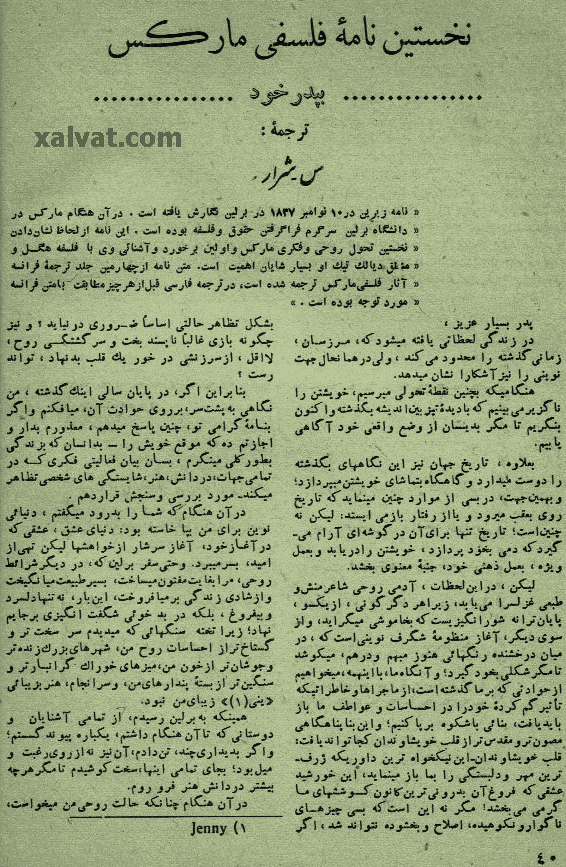 نخستین نامهٔ فلسفی مارکس
بپدر خود
ترجمهٔ :
xalvat.com
س. شرار.
« نامه زیرین در ۱۰ نوامبر ۱۸۳۷ در برلین نگارش یافته است . در آن هنگام مارکس در
« دانشگاه برلین سرگرم فراگرفتن حقوق و فلسفه بوده است . این نامه از لحاظ نشان دادن
« نخستین تحول روحی و فکری مارکس و اولین برخورد و آشنائی وی با فلسفه هگل و
« منطق دیالک تیک او بسیار شایان اهمیت است. متن نامه از چهارمین جلد ترجمهٔ فرانسه
« آثار فلسفی مارکس ترجمه شده است، در ترجمه فارسی قبل از هر چیز مطابقت با متن فرانسه
« مورد توجه بوده است . »
پدر بسیار عزیز ،
در زندگی لحظاتی یافته میشود که، مرزسان،
زمانی گذشته را محدود می کند ، ولی در همانحال جهت
نوینی را نیز آشکارا نشان میدهد.
هنگامیکه بچنین نقطهٔ تحولی میرسیم، خویشتن را
ناگزیر می بینیم که بادیدهٔ تیزبین اندیشه بگذشته و اکنون
بنگریم تا مگر بدینسان از وضع واقعی خود آگاهی
یابیم.
بعلاوه ، تاریخ جهان نیز این نگاههای بگذشته
را دوست میدارد و گاهگاه بتماشای خویشتن میپردازد؛
و بهمین جهت، در بسی از موارد چنین مینماید که تاریخ
روی بعقب میرود و یا از رفتار بازمی ایستد: لیکن نه
چنین است؛ تاریخ تنها برای آن در گوشه ای آرام می-
گیرد که دمی بخود پردازد ، خویشتن را دریابد و بعمل
ویژه ، بعمل ذهنی خود، جنبهٔ معنوی بخشد.
لیکن ، در این لحظات ، آدمی روحی شاعرمنش و
طبعی غزلسرا می یابد، زیرا هر دگرگونی ، از یکسو ،
پایان ترانه شورانگیزیست که بخاموشی میگراید، و از
سوی دیگر، آغاز منظومهٔ شگرف نوینی است که ، در
میان درخشنده رنگهائی هنوز مبهم و درهم، میکوشد
تا مگر شکلی بخود گیرد؛ و آنگاه ما، با اینهمه، میخواهیم
از حوادثی که بر ما گذشته است، از ماجراها و خاطراتیکه
تأثیر گم کردهٔ خود را در احساسات و عواطف ما باز
باید یافت، بنائی باشکوه برپا کنیم؛ و این بنا پناهگاهی
مصون تر و مقدس تر از قلب خویشاوندان کجا تواند یافت:
قلب خویشاوندان-این نیکخواه ترین داور یکه ژرف-
ترین مهر و دلبستگی را بما باز مینماید، این خورشید
عشقی که فروغ آن بدرونی ترین کانون کوششهای ما
گرمی می بخشد! مگر نه این است که بسی چیزهای
ناگوار و نکوهیده، اصلاح و بخشوده نتواند شد ، اگر
بشکل تظاهر حالتی اساساً ضروری در نیاید ؟ و نیز
چگونه بازی غالباً ناپسند بخت و سرگشتگی روح،
لااقل ، از سرزنشی در خور یک قلب بدنهاد ، تواند
رست ؟
بنابراین اگر، در پایان سالی اینک گذشته ، من
نگاهی به پشت سر، بر روی حوادث آن، میافکنم و اگر
بنامهٔ گرامی تو، چنین پاسخ میدهم ، معذورم بدار و
اجازتم ده که موقع خویش را — بدانسان که بزندگی
بطور کلی مینگرم ، بسان بیان فعالیتی فکری که در
تمامی جهات، در دانش، هنر، شایستگی های شخصی تظاهر
میکند- مورد بررسی و سنجش قرار دهم .
در آن هنگام که شما را بدرود میگفتم ، دنیائی
نوین برای من بپا خاسته بود: دنیای عشق ، عشقی که
در آغاز خود، آغاز سرشار از خواهشها لیکن تهی از
امید، بسر میبرد. وحتی سفر برلین که، در دیگر شرائط
روحی، مرا بغایت مفتون میساخت، بسیر طبیعت میانگیخت
و از شادی زندگی بر میافروخت، این بار، نه تنها دلسرد
و بیفروغ ، بلکه در بد خوئی شگفت انگیزی بر جایم
نهاد؛ زیرا تخته سنگهائی که میدیدم سر سخت تر و
گستاخ تر از احساسات روح من، شهرهای بزرگ زنده تر
وجوشان تر از خون من، میزهای خوراک گرانبارتر و
سنگین تر از بستهٔ پندارهای من، و سرانجام، هنر بزیبائی
«ینی(۱)» زیبای من نبود.
همینکه به برلین رسیدم، از تمامی آشنایان و
دوستانی که تا آن هنگام داشتم، یکباره پیوند گسستم؛
و اگر بدیداری چند، تن دادم، آن نیز نه از روی رغبت و
میل بود؛ بجای تمامی اینها، سخت کوشیدم تا مگر هرچه
بیشتر در دانش هنر فرو روم.
در آن هنگام چنانکه حالت روحی من میخواست،
Jenny (۱
۴۰